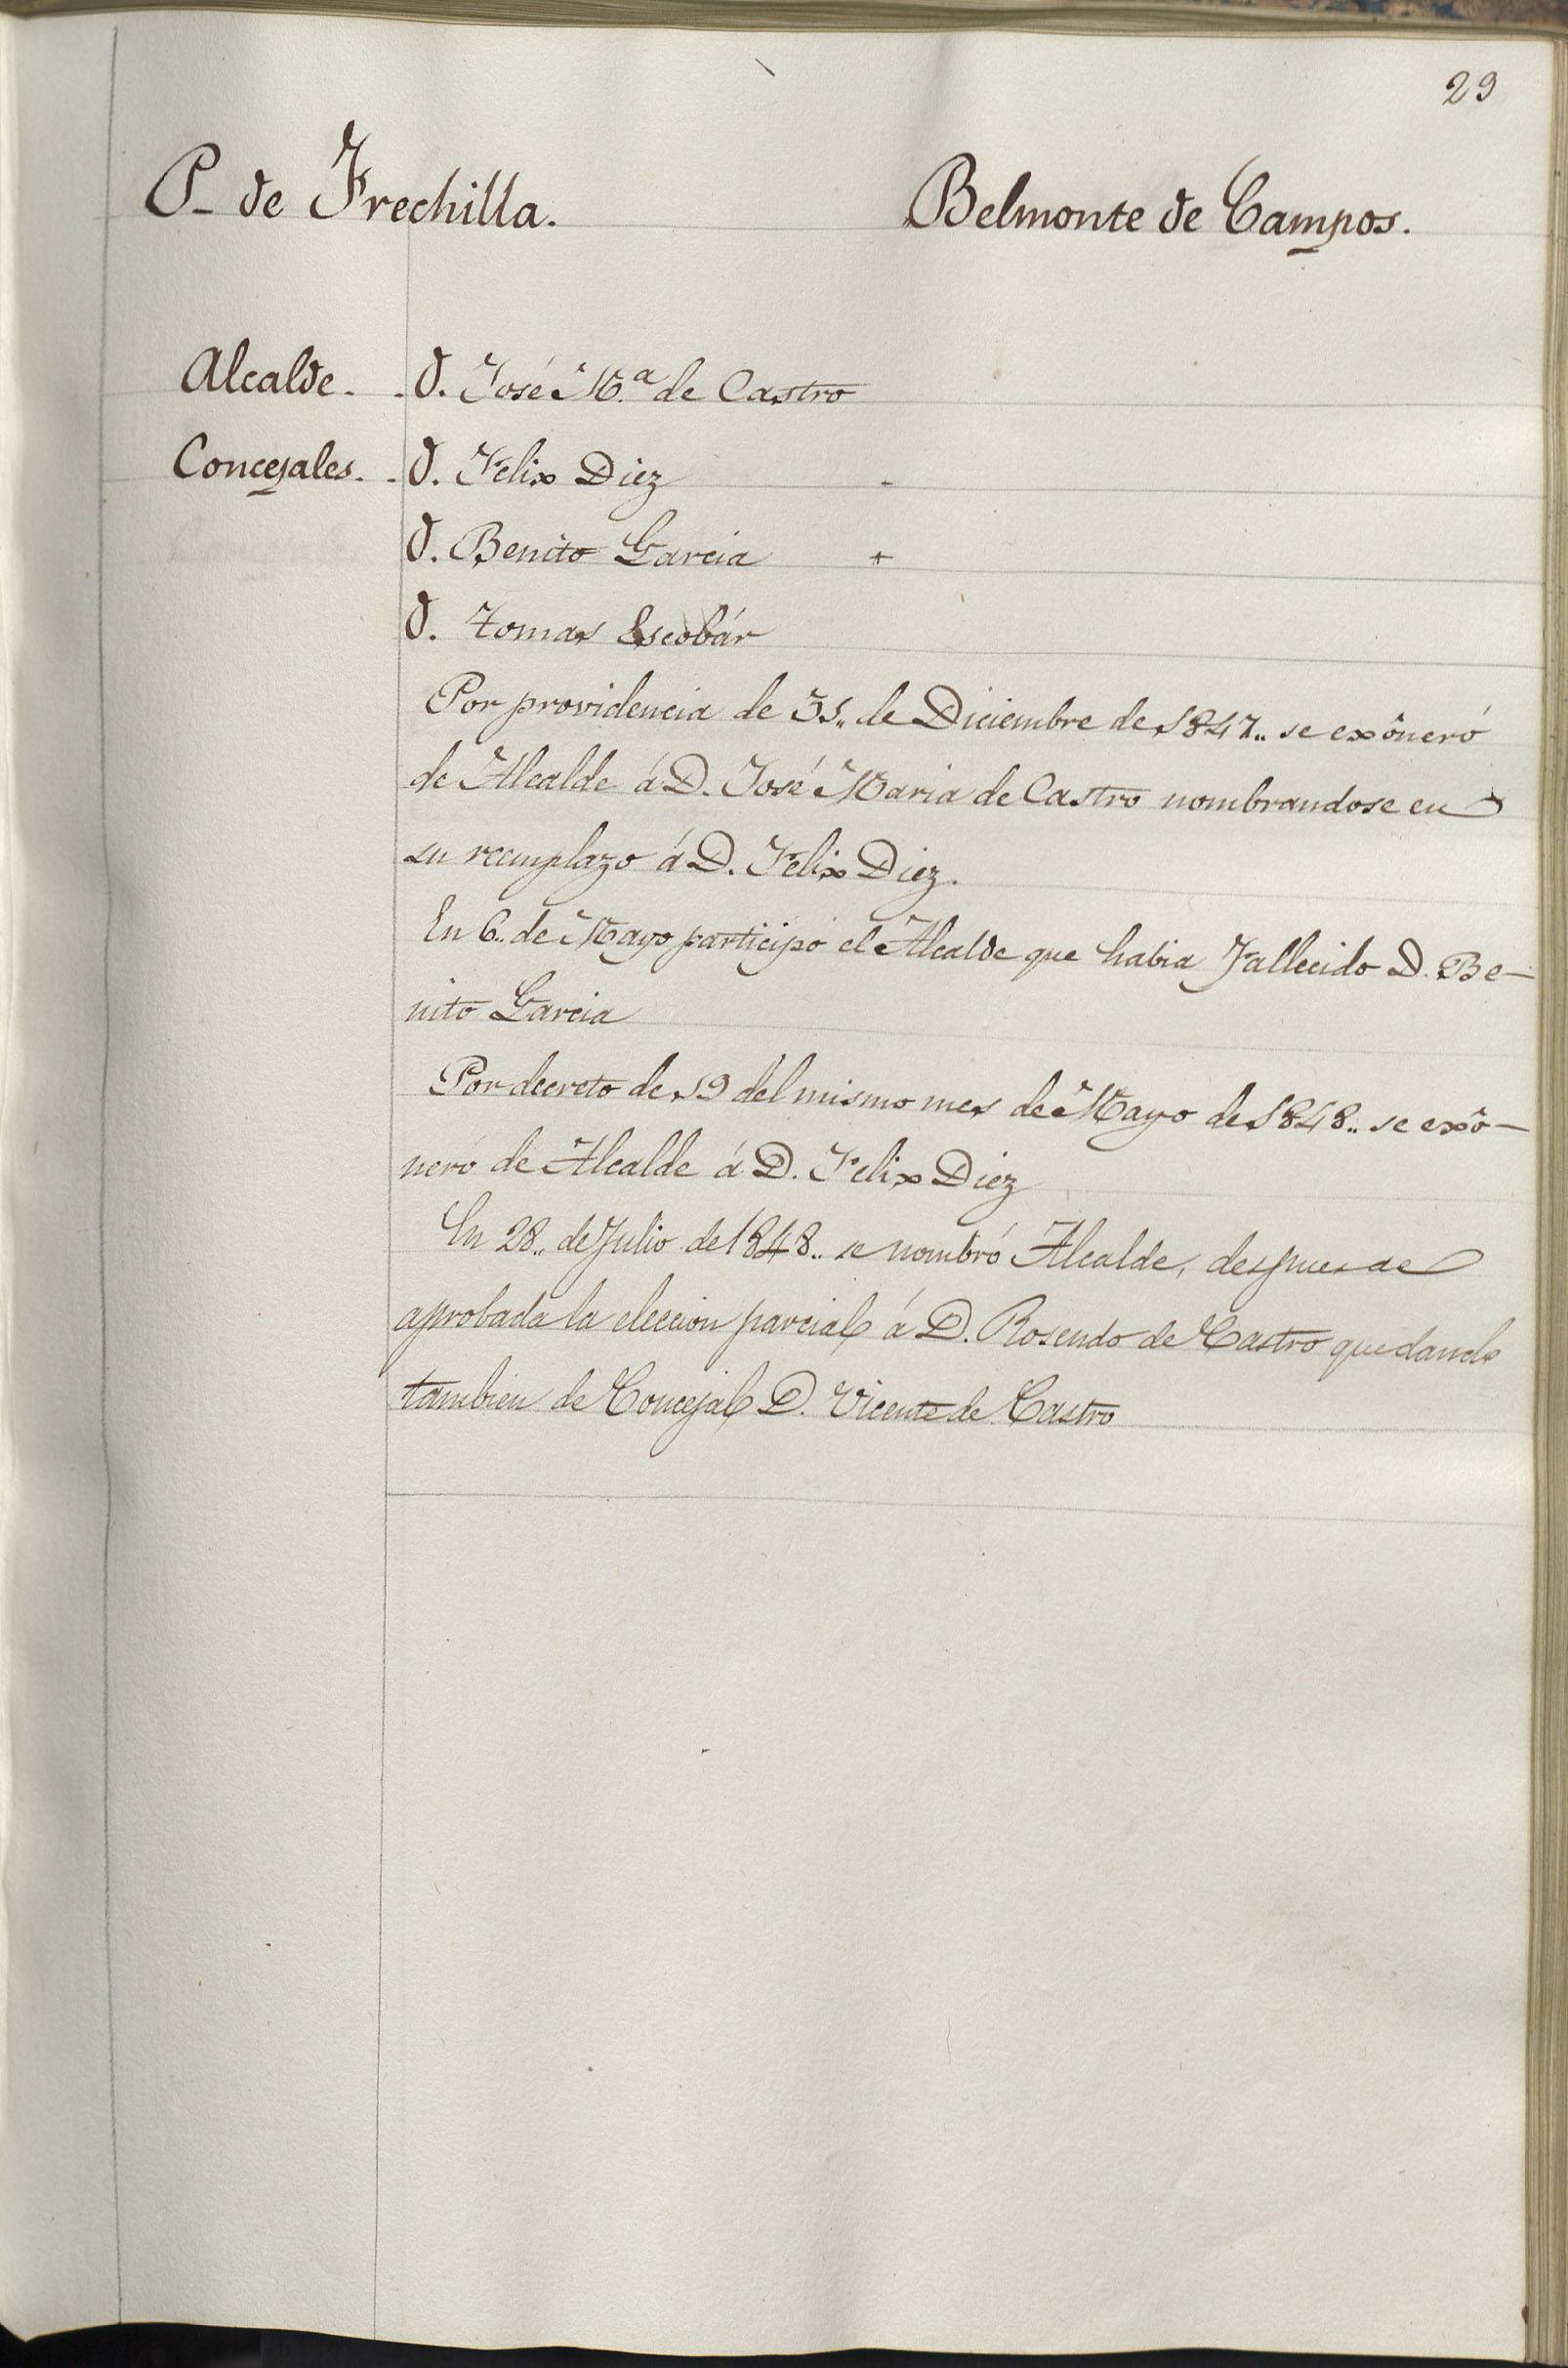 29
P- de Frechilla. Belmonte de Campos.
Alcalde. . D. José M.ª de Castro
Concejales. . D. Felix Diez -
D. Benito Garcia +
D. Tomas Escobár
Por providencia de 31.. de Diciembre de 1847.. se exôneró
de Alcalde á D. José Maria de Castro nombrandose en
su reemplazo á D. Felix Diez.
En 6.. de Mayo participó el Alcalde que habia Fallecido D. Be-
nito Garcia
Por decreto de 19 del mismo mes de Mayo de 1848.. se exô-
neró de Alcalde á D. Felix Diez
En 28.. de Julio de 1848.. se nombró Alcalde, despues de
aprobada la eleccion parcial á D. Rosendo de Castro quedando
tambien de Concejal D. Vicente de Castro